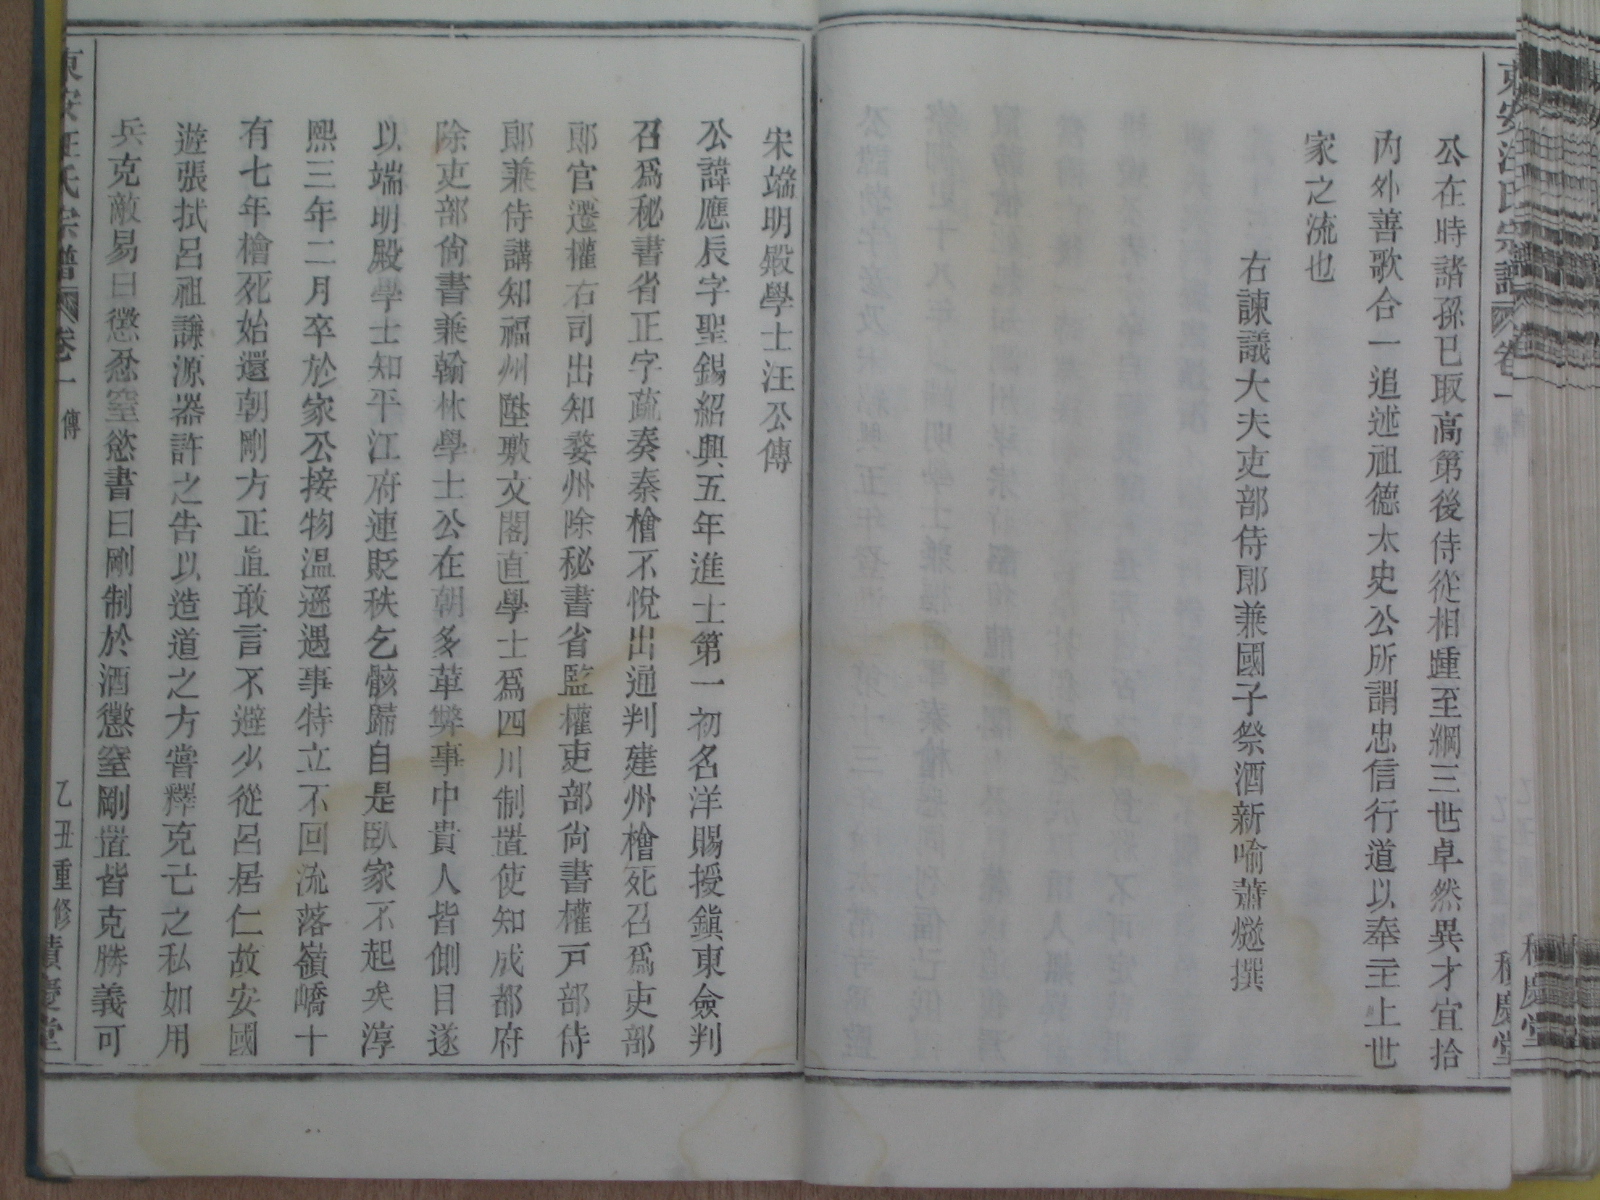 東安汪氏宗譜 卷一
積慶堂
公在時諸孫已取高第後侍從相踵至綱三世卓然異才宜拾
內外善歌合一追述祖德太史公所謂忠信行道以奉主上世
家之流也
右諫議大夫吏部侍郎兼國子祭酒新喻蕭燧撰
宋端明殿學士汪公傳
公諱應辰字聖錫紹興五年進士第一初名洋賜授鎮東僉判
召爲秘書省正字疏奏秦檜不悅出通判建州檜死召爲吏部
郎官遷權右司出知婺州除秘書省監權吏部尙書權戸部侍
郎兼侍講知福州陞敷文閣直學士爲四川制置使知成都府
除吏部尙書兼翰林學士公在朝多革弊事中貴人皆側目遂
以端明殿學士知平江府連貶秩乞骸歸自是臥家不起矣淳
熙三年二月卒於家公接物溫遜遇事特立不回流落嶺嶠十
有七年檜死始還朝剛方正直敢言不避少從呂居仁故安國
遊張拭呂祖謙源器許之告以造道之方嘗釋克己之私如用
兵克敵易曰懲忿窒慾書曰剛制於酒懲窒剛置皆克勝義可
東安汪氏宗譜 卷一 傳 乙丑重修 積慶堂